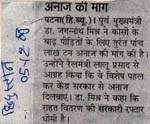 अनाज की मांग
पटना(हि.ब्यू.)। पूर्व मुख्यमंत्री
डा. जगन्नाथ मिश्र ने कोसी के
बाढ़ पीड़ितों के लिए तुरंत पांच
लाख टन अनाज की मांग की है।
उन्होंने रेलमंत्री लालू प्रसाद से
आग्रह किया कि वे विशेष पहल
कर केंद्र सरकार से अनाज
दिलवाएं। डा. मिश्र ने कहा कि
राहत वितरण की सरकारी रफ्तार
धीमी है।
हिन्दुस्तान
05-12-08